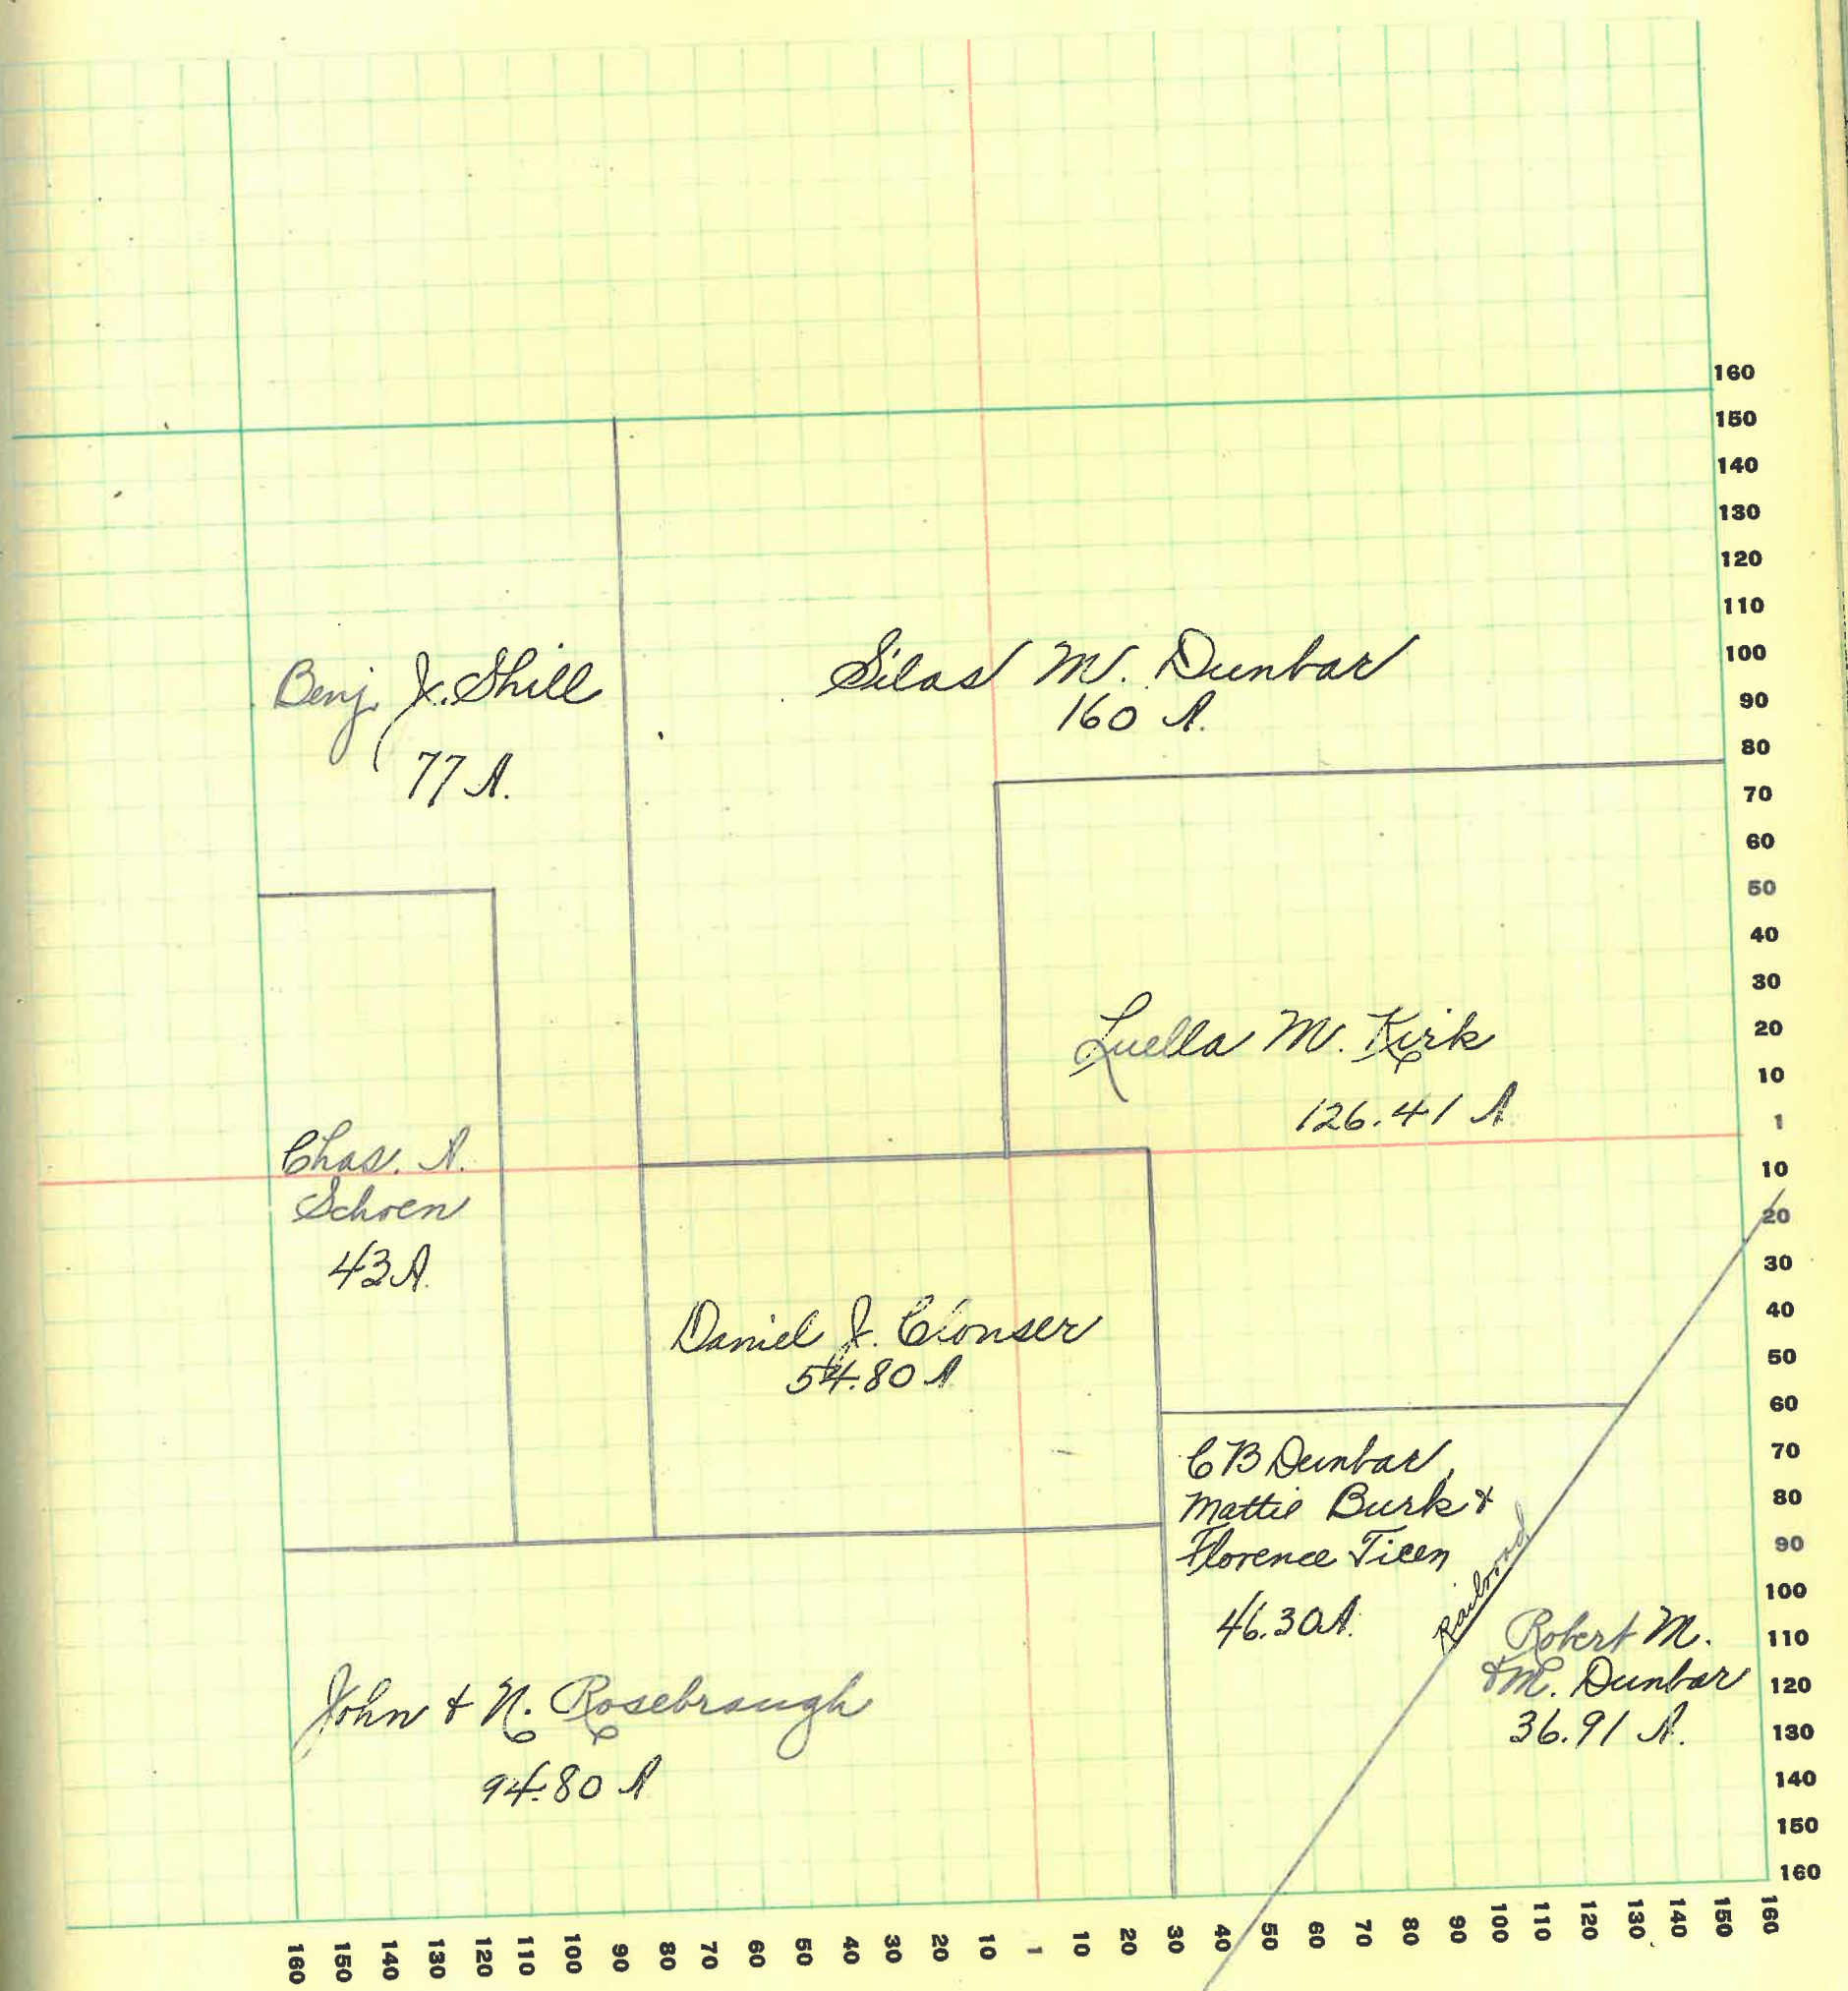 Silas M. Dunbar
160 A.
Benj. J. Shill
77 A.
Luella M. Kirk
126.41 A
Chas. A.
Schoen
43 A.
Daniel J. Clonser
54.80 A
C B Dunbar,
Mattie Burk &
Florence Ticen
46.30 A.
Railroad
Robert M.
& M. Dunbar
36.91 A.
John & N. Rosebraugh
94.80 A
160
150
140
130
120
110
100
90
80
70
60
50
40
30
20
10
1
10
20
30
40
50
60
70
80
90
100
110
120
130
140
150
160
160 150 140 130 120 110 100 90 80 70 60 50 40 30 20 10 1 10 20 30 40 50 60 70 80 90 100 110 120 130 140 150 160